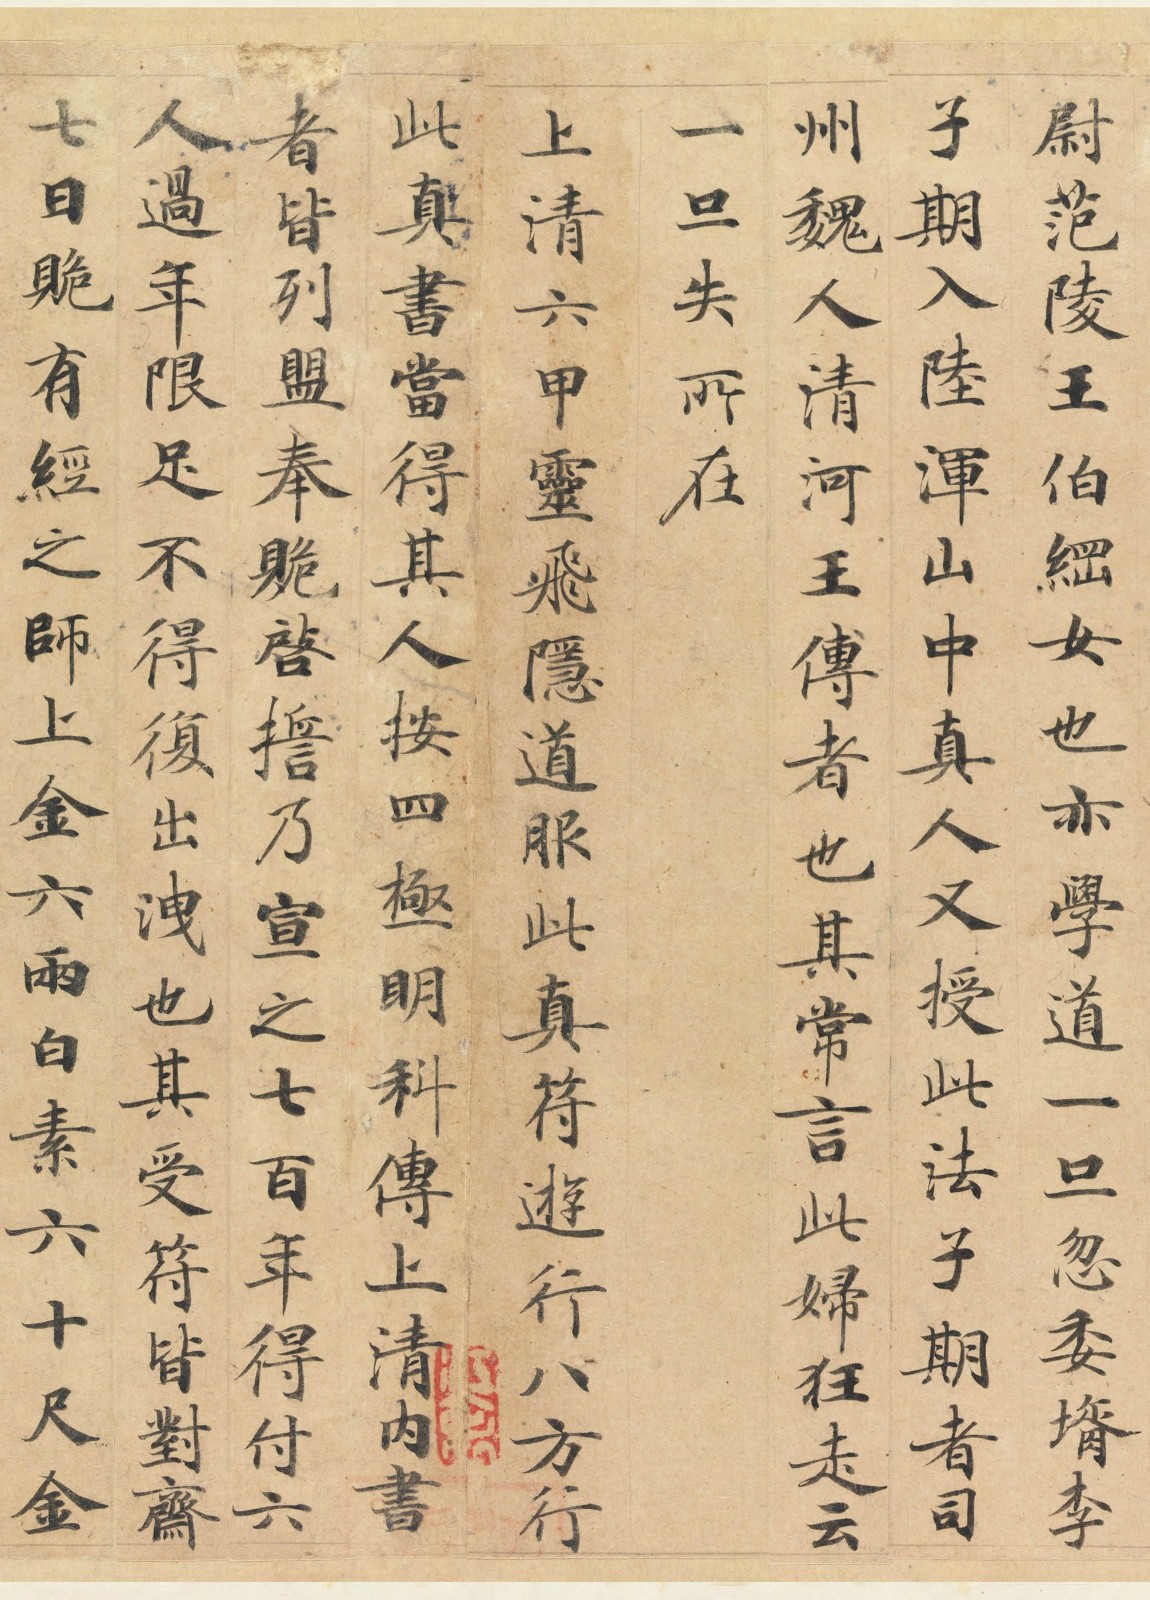 尉范陵王伯綱女也亦學道一旦忽委壻李
子期入陸渾山中真人又授此法子期者司
州魏人清河王傅者也其常言此婦狂走云
一旦失所在
上清六甲靈飛隱道服此真符遊行八方行
此真書當得其人按四極明科傳上清內書
者皆列盟奉跪啓擔乃宣之七百年得付六
人過年限足不得復出洩也其受符皆對齋
七日賝有經之師上金六兩白素六十尺金